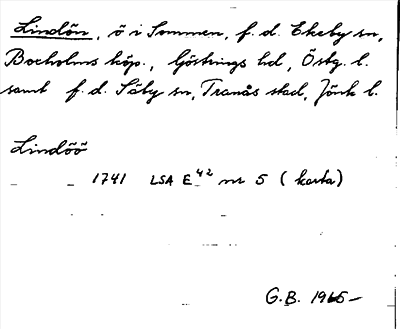 Lindön, ö i Sommen, f. d. Ekeby sn,
Boxholms köp., Göstrings hd, Östg. l.
samt f. d. Säby sn, Tranås stad, Jönk l.
Lindöö
_ _ 1741 LSA E 42 nr 5 (karta)
G.B. 1965-